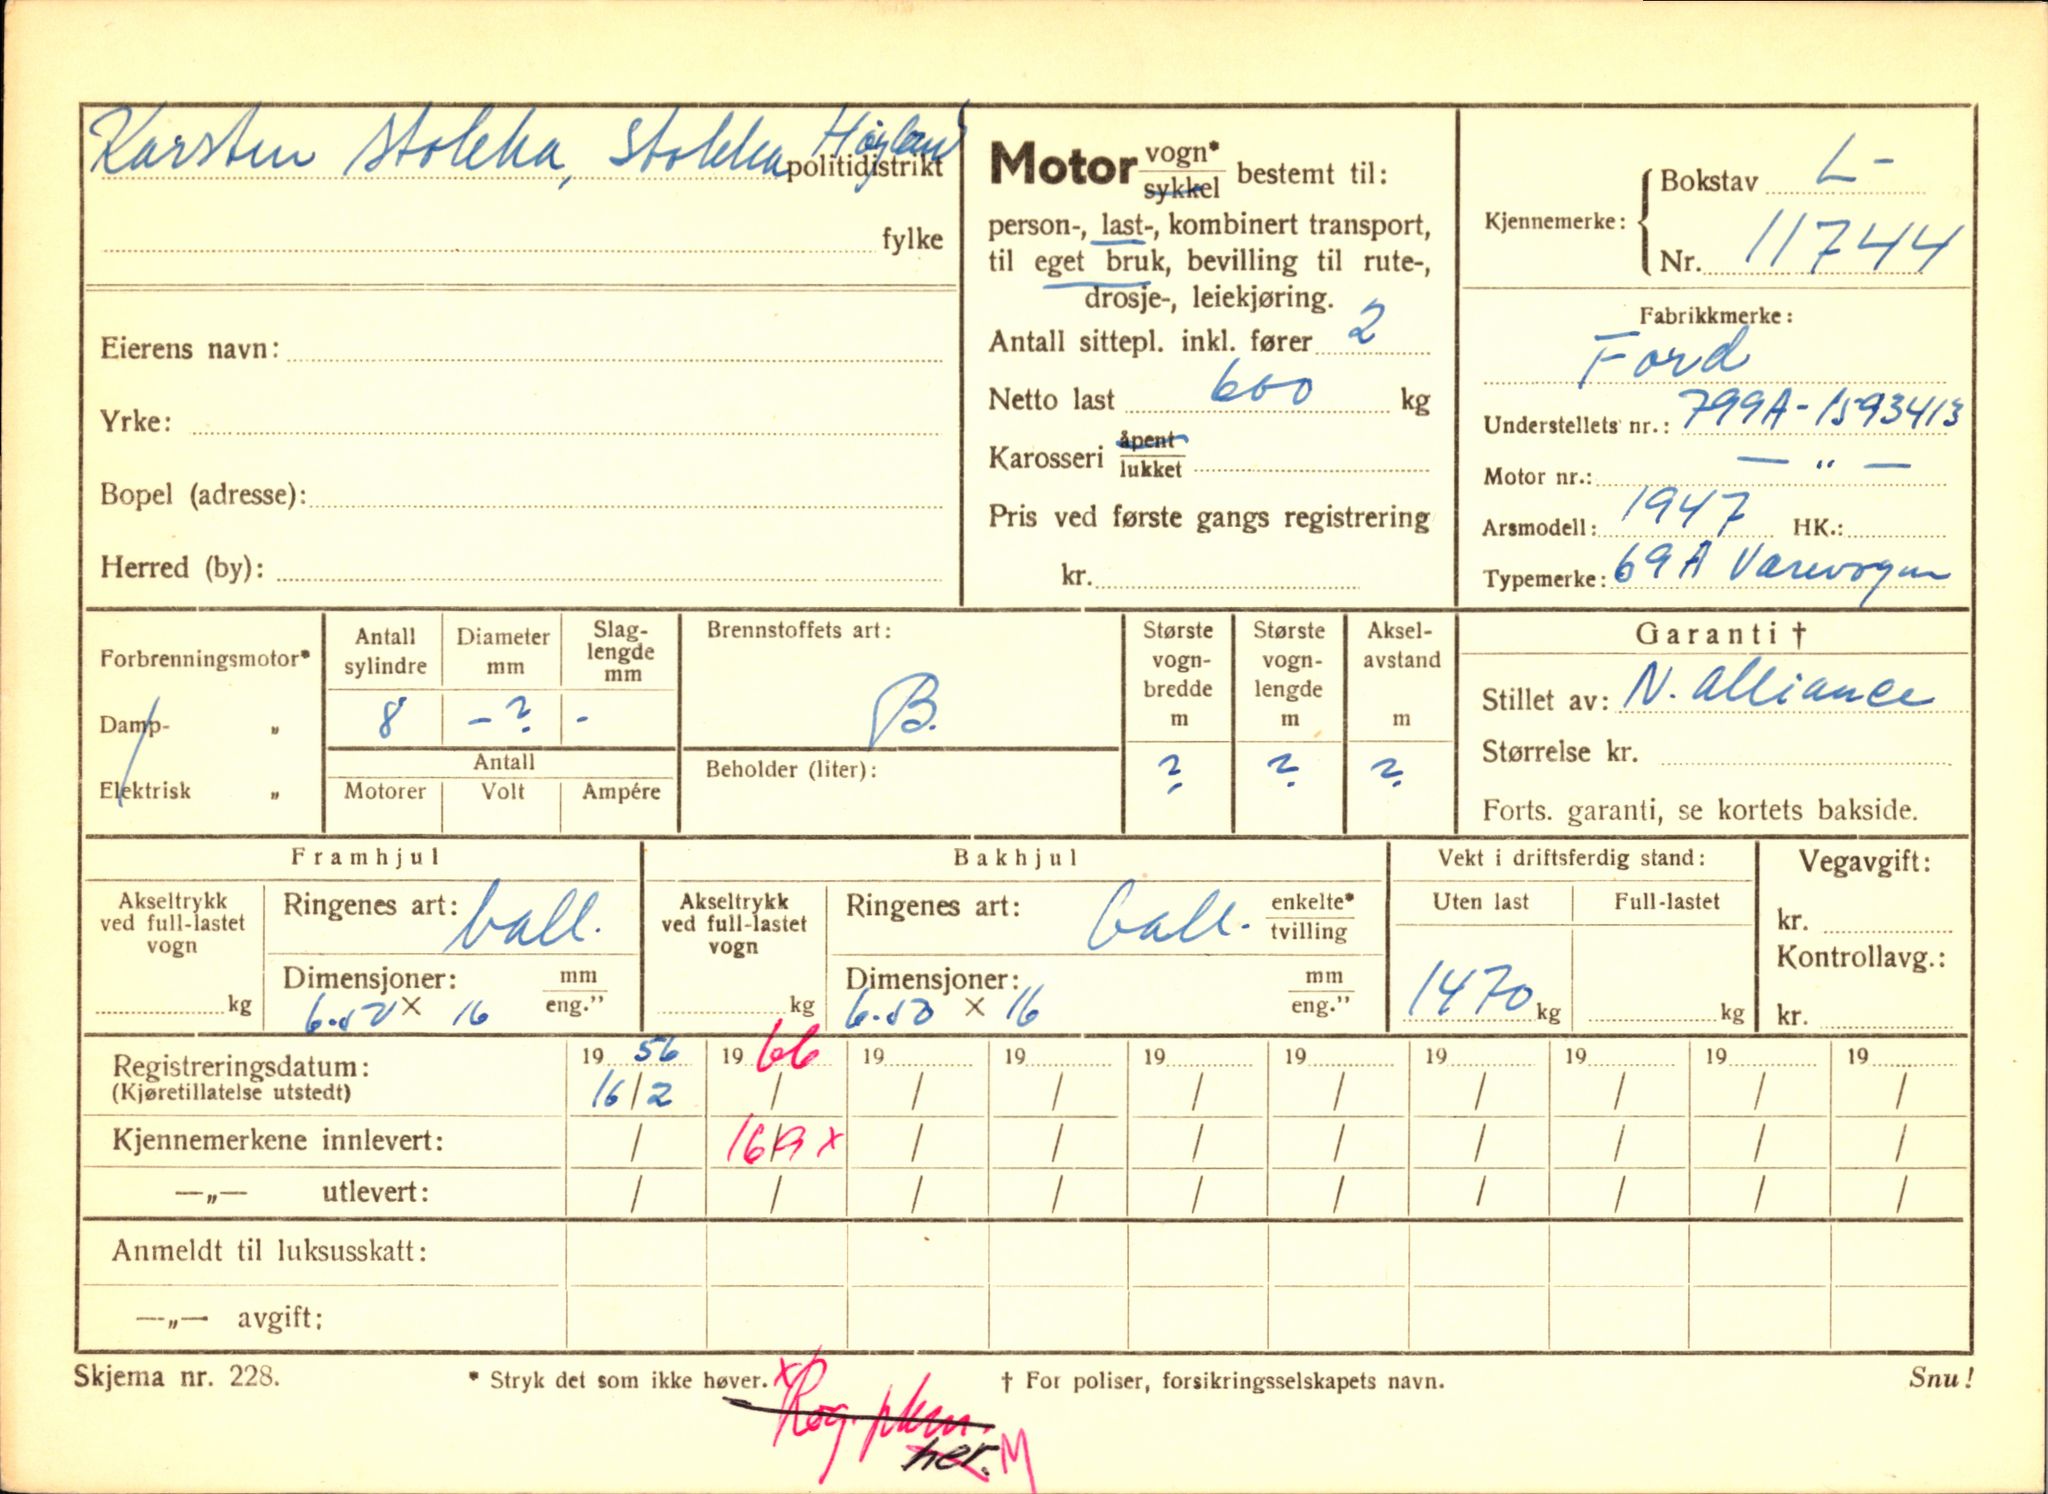 Karsten Stokka, Stokka Høyland
politidistrikt
fylke
Eierens navn:
Yrke:
Bopel (adresse):
Herred (by):
Motor vogn* sykkel bestemt til:
person-, last-, kombinert transport,
til eget bruk, bevilling til rute-,
drosje-, leiekjøring.
Antall sittepl. inkl. fører 2
Netto last 600 kg
Karosseri åpent lukket
Pris ved første gangs registrering
kr.
Kjennemerke: Bokstav L-
Nr. 11744
Fabrikkmerke:
Ford
Understellets nr.: 799A-1593413
Motor nr.: — „ —
Arsmodell: 1947 HK.:
Typemerke: 69A Varevogn
Forbrenningsmotor*
Damp- „
Elektrisk „
Antall sylindre
Diameter mm
Slag-
lengde
mm
8 - ? -
Antall
Motorer Volt Ampére
Brennstoffets art:
B.
Beholder (liter):
Største
vogn-
bredde
m
?
Største
vogn-
lengde
m
?
Aksel-
avstand
m
?
Garanti †
Stillet av: N. Alliance
Størrelse kr.
Forts. garanti, se kortets bakside.
Framhjul
Akseltrykk
ved full-lastet
vogn
kg
Ringenes art: ball.
Dimensjoner: mm eng.”
6.50 x 16
Bakhjul
Akseltrykk
ved full-lastet
vogn
kg
Ringenes art: ball. enkelte* tvilling
Dimensjoner: mm eng.”
6.50 x 16
Vekt i driftsferdig stand:
Uten last Full-lastet
1470 kg kg
Vegavgift:
kr.
Kontrollavg.:
kr.
Registreringsdatum: 19 56 19 66 19 19 19 19 19 19 19 19
(Kjøretillatelse utstedt) 16/2 / / / / / / / / /
Kjennemerkene innlevert: / 16/9 x / / / / / / / /
—„— utlevert: / / / / / / / / / /
Anmeldt til luksusskatt:
—„— avgift:
Skjema nr. 228. * Stryk det som ikke høver. † For poliser, forsikringsselskapets navn. Snu!
x
her. M